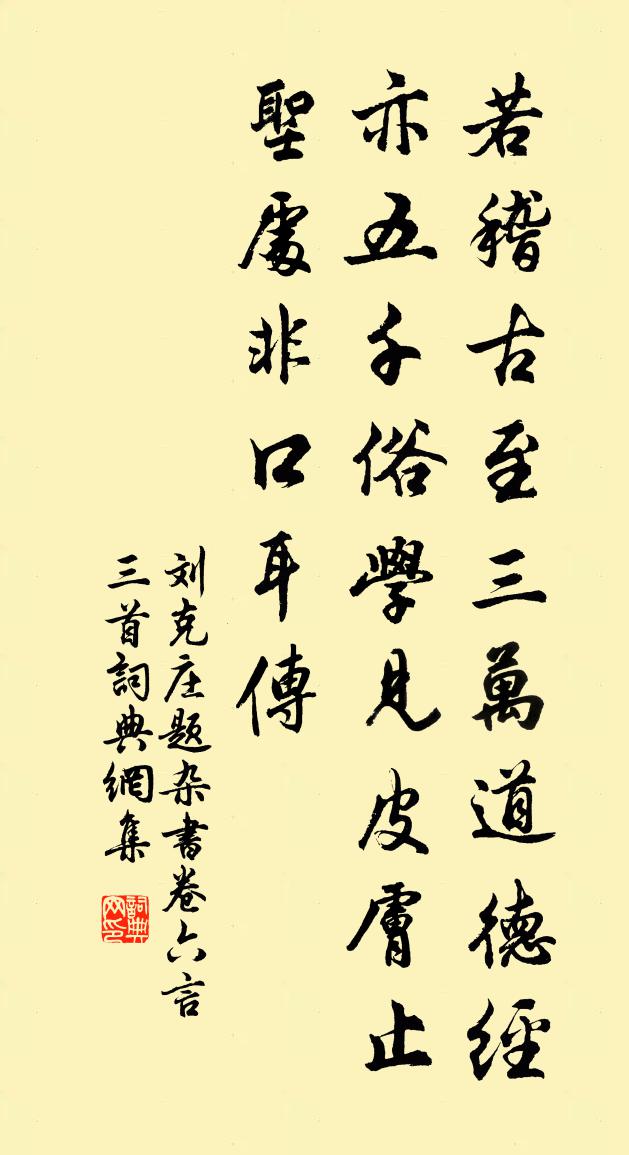 若稽古至三萬道德經
亦五千俗學見皮膚止
聖處非口耳傳
刘克庄题杂書卷六言
三首詞典網集
詞典
网印